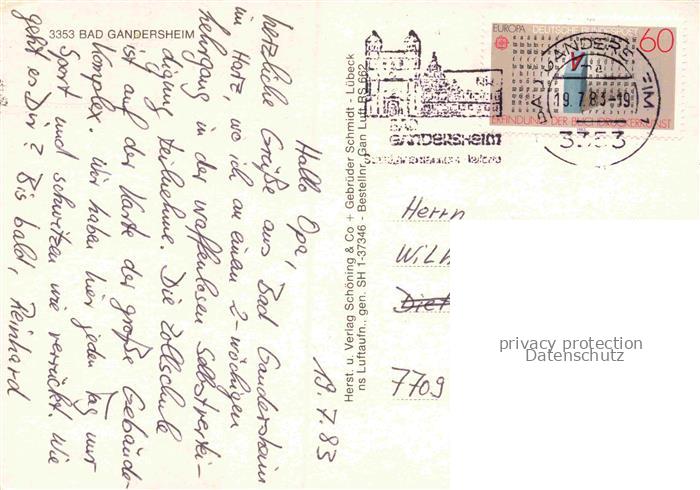 3353 BAD GANDERSHEIM
Hallo Opa,
herzliche Grüße aus Bad Gandersheim
im Harz wo ich an einen 2-wöchigen
Lehrgang in der waffenlosen Selbstvertei-
digung teilnehme. Die Zollschule
ist auf der Karte der große Gebäude-
komplex. Wir haben hier jeden Tag nur
Sport und schwitzen wie verrückt. Wie
geht es Dir? Bis bald, Reinhard
19.7.83
Herst. u. Verlag Schöning & Co + Gebrüder Schmidt - Lübeck
ns Luftaufn., gen. SH 1-37346 - Bestellnr. Gan Luft RS 662
BAD
GANDERSHEIM
EUROPA DEUTSCHE BUNDESPOST 60
ERFINDUNG DER BUCHDRUCKERKUNST
BAD GANDERSHEIM 1
19.7.83-19
3353
Herrn
Wilh
Diet
7709
privacy protection
Datenschutz